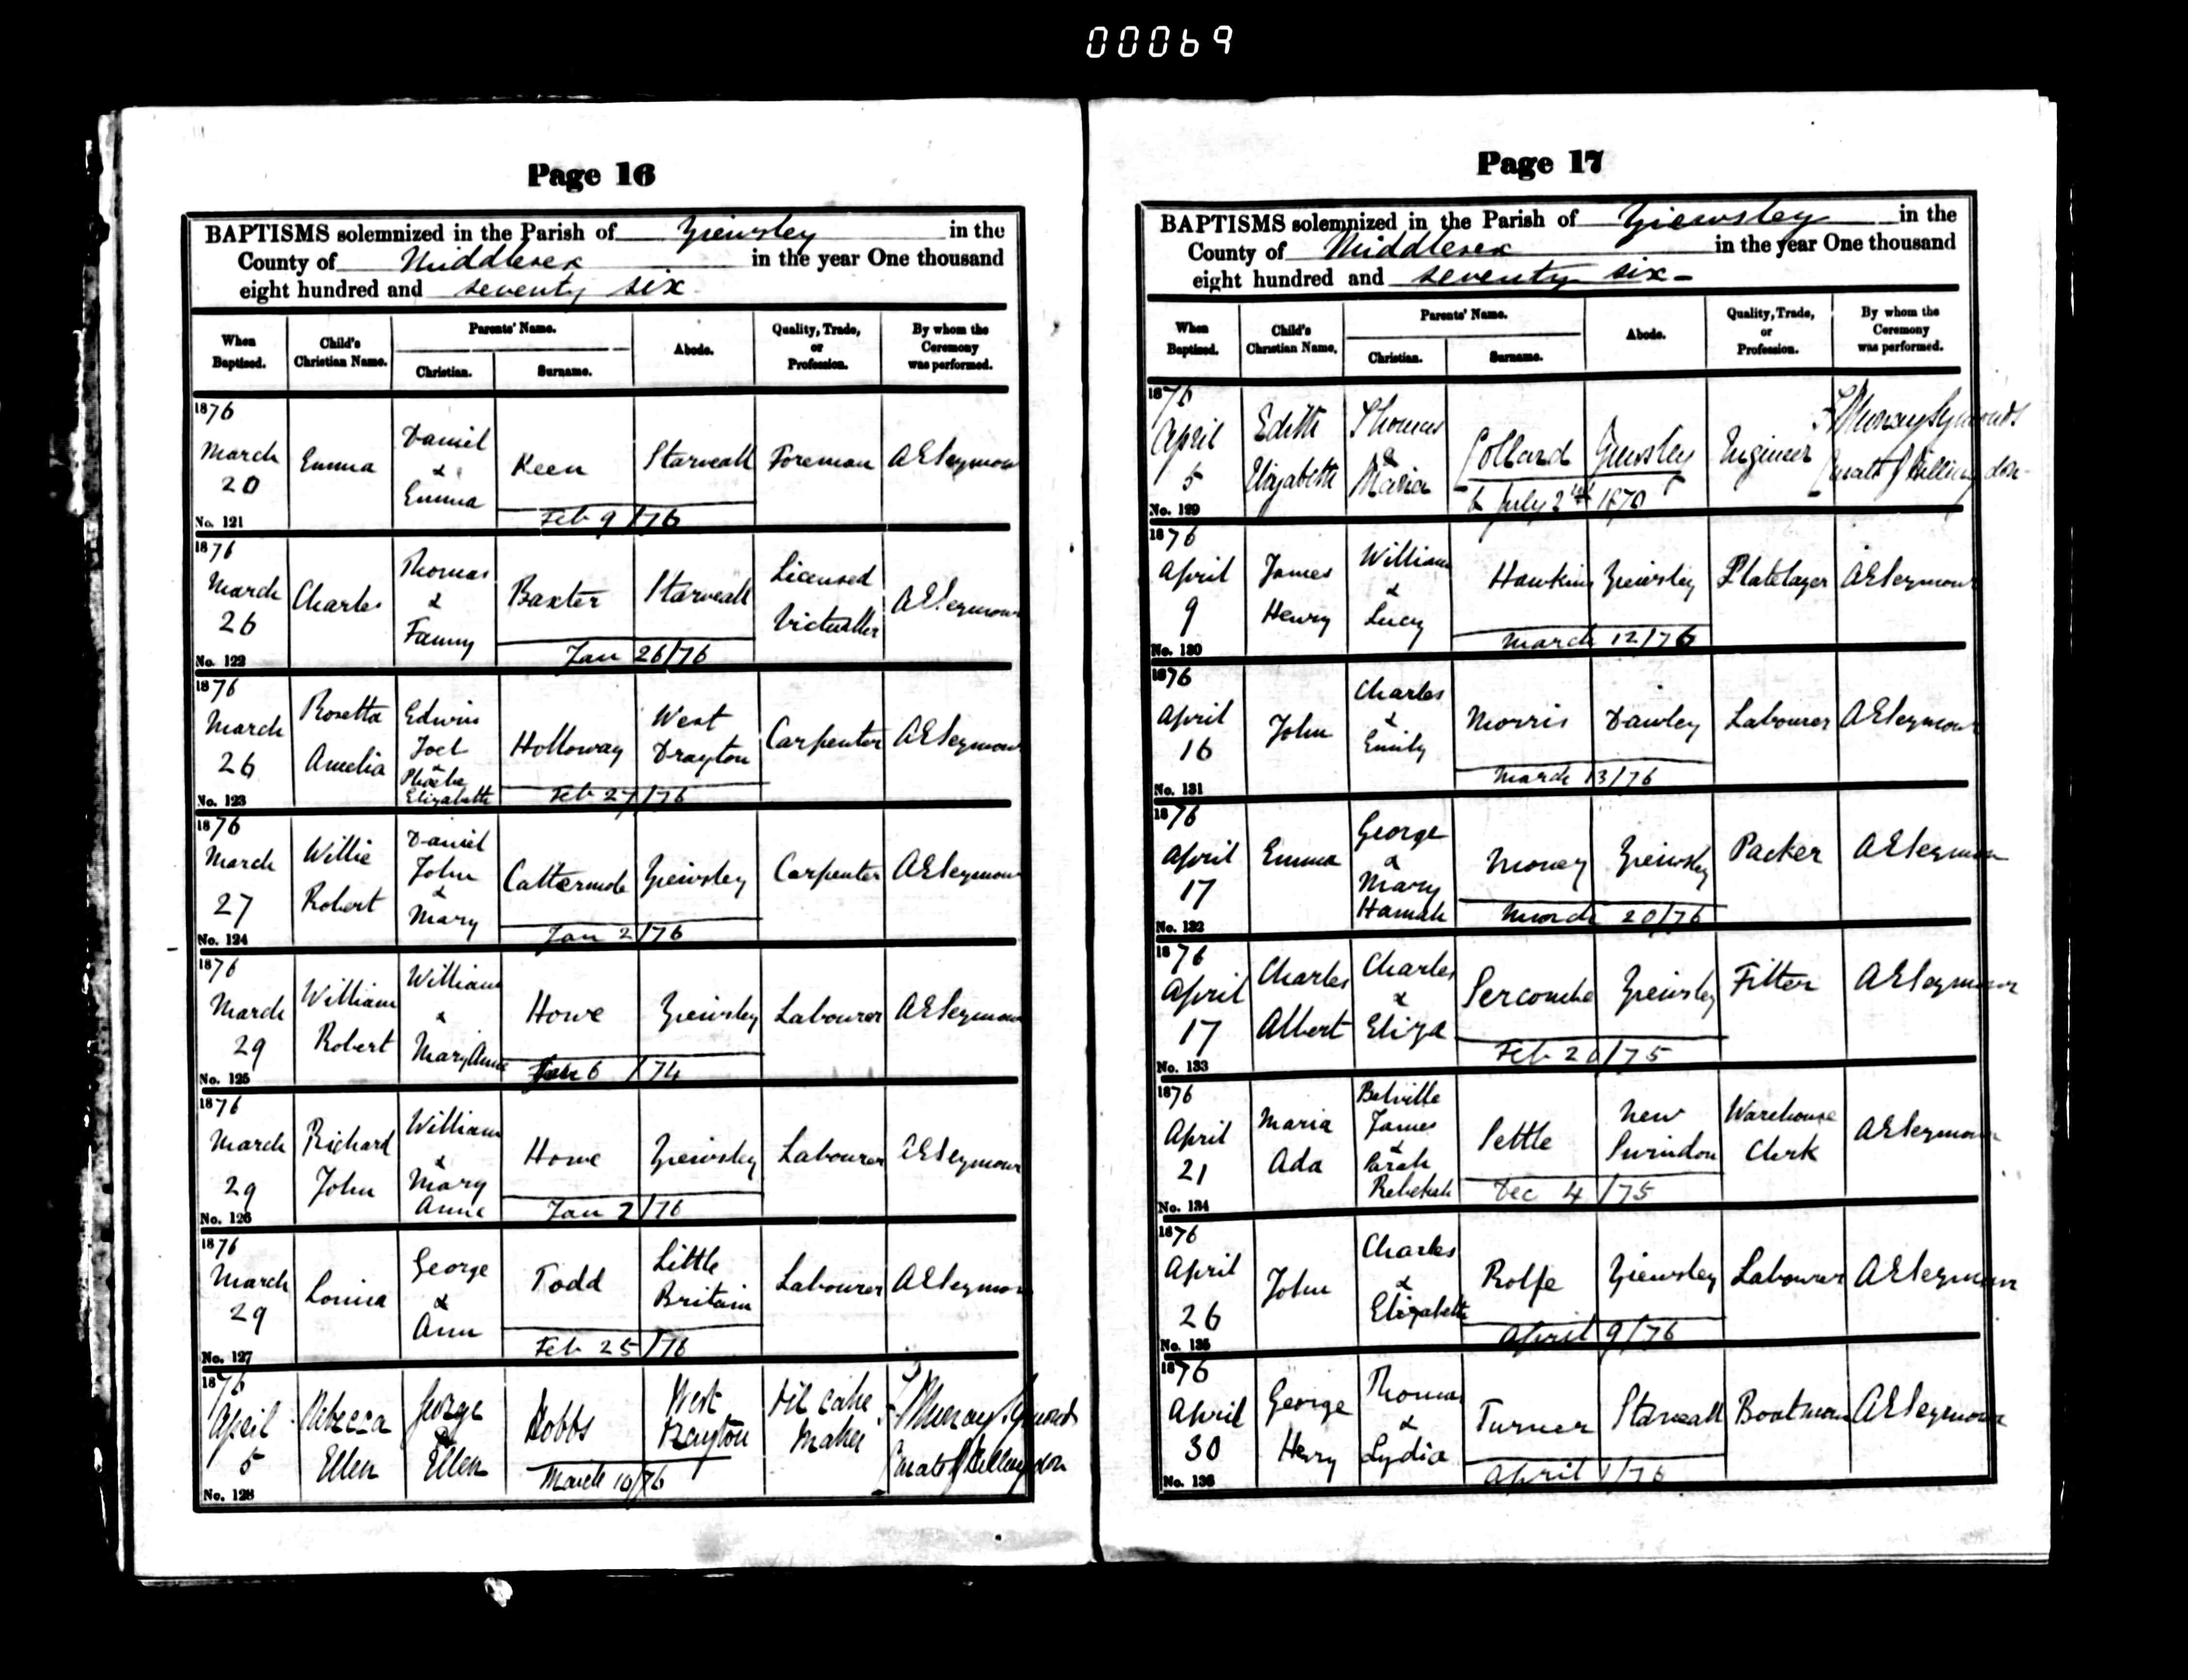 000069
Page 16
BAPTISMS solemnized in the Parish of Yiewsley in the
County of Middlesex in the year One thousand
eight hundred and seventy six
When Baptized. Child's Christian Name. Parents' Name. Christian. Surname. Abode. Quality, Trade, or Profession. By whom the Ceremony was performed.
1876 March 20 Emma Daniel & Emma Keen Starveall Foreman AESeymour
Feb 9/76
No. 121
1876 March 26 Charles Thomas & Fanny Baxter Starveall Licensed Victualler AESeymour
Jan 26/76
No. 122
1876 March 26 Rosetta Amelia Edwin Joel & Phoebe Elizabeth Holloway West Drayton Carpenter AESeymour
Feb 27/76
No. 123
1876 March 27 Willie Robert Daniel John & Mary Cattermole Yiewsley Carpenter AESeymour
Jan 2/76
No. 124
1876 March 29 William Robert William & Mary Anne Howe Yiewsley Labourer AESeymour
6/74
No. 125
1876 March 29 Richard John William & Mary Anne Howe Yiewsley Labourer AESeymour
Jan 2/76
No. 126
1876 March 29 Louisa George & Ann Todd Little Britain Labourer AESeymour
Feb 25/76
No. 127
1876 April 5 Rebecca Ellen George & Ellen Hobbs West Drayton Oil cake Maker Murray Symonds Curate of Hillingdon
March 10/76
No. 128
Page 17
BAPTISMS solemnized in the Parish of Yiewsley in the
County of Middlesex in the year One thousand
eight hundred and seventy six
When Baptized. Child's Christian Name. Parents' Name. Christian. Surname. Abode. Quality, Trade, or Profession. By whom the Ceremony was performed.
1876 April 5 Edith Elizabeth Thomas & Maria Collard Yiewsley Engineer Murray Symonds Curate of Hillingdon
b July 2nd 1870
No. 129
1876 April 9 James Henry William & Lucy Hawkins Yiewsley Platelayer AESeymour
March 12/76
No. 130
1876 April 16 John Charles & Emily Morris Dawley Labourer AESeymour
March 13/76
No. 131
1876 April 17 Emma George & Mary Hannah Money Yiewsley Packer AESeymour
March 20/76
No. 132
1876 April 17 Charles Albert Charles & Eliza Sercombe Yiewsley Fitter AESeymour
Feb 20/75
No. 133
1876 April 21 Maria Ada Belville James & Sarah Rebekah Settle New Swindon Warehouse Clerk AESeymour
Dec 4/75
No. 134
1876 April 26 John Charles & Elizabeth Rolfe Yiewsley Labourer AESeymour
April 9/76
No. 135
1876 April 30 George Henry Thomas & Lydia Turner Starveall Boatman AESeymour
April 1/76
No. 136